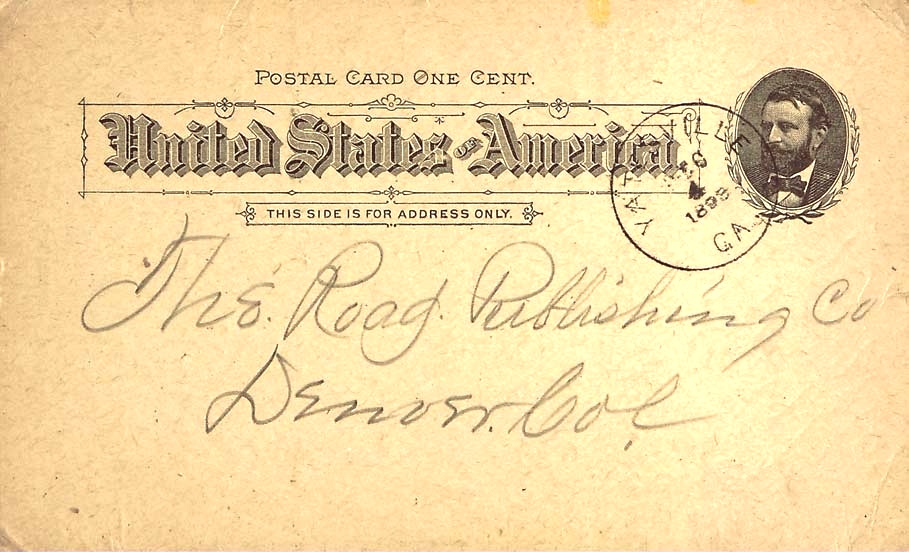 POSTAL CARD ONE CENT.
United States of America
THIS SIDE IS FOR ADDRESS ONLY.
YATESVILLE
4
GA.
The. Road. Publishing Co
Denver. Col